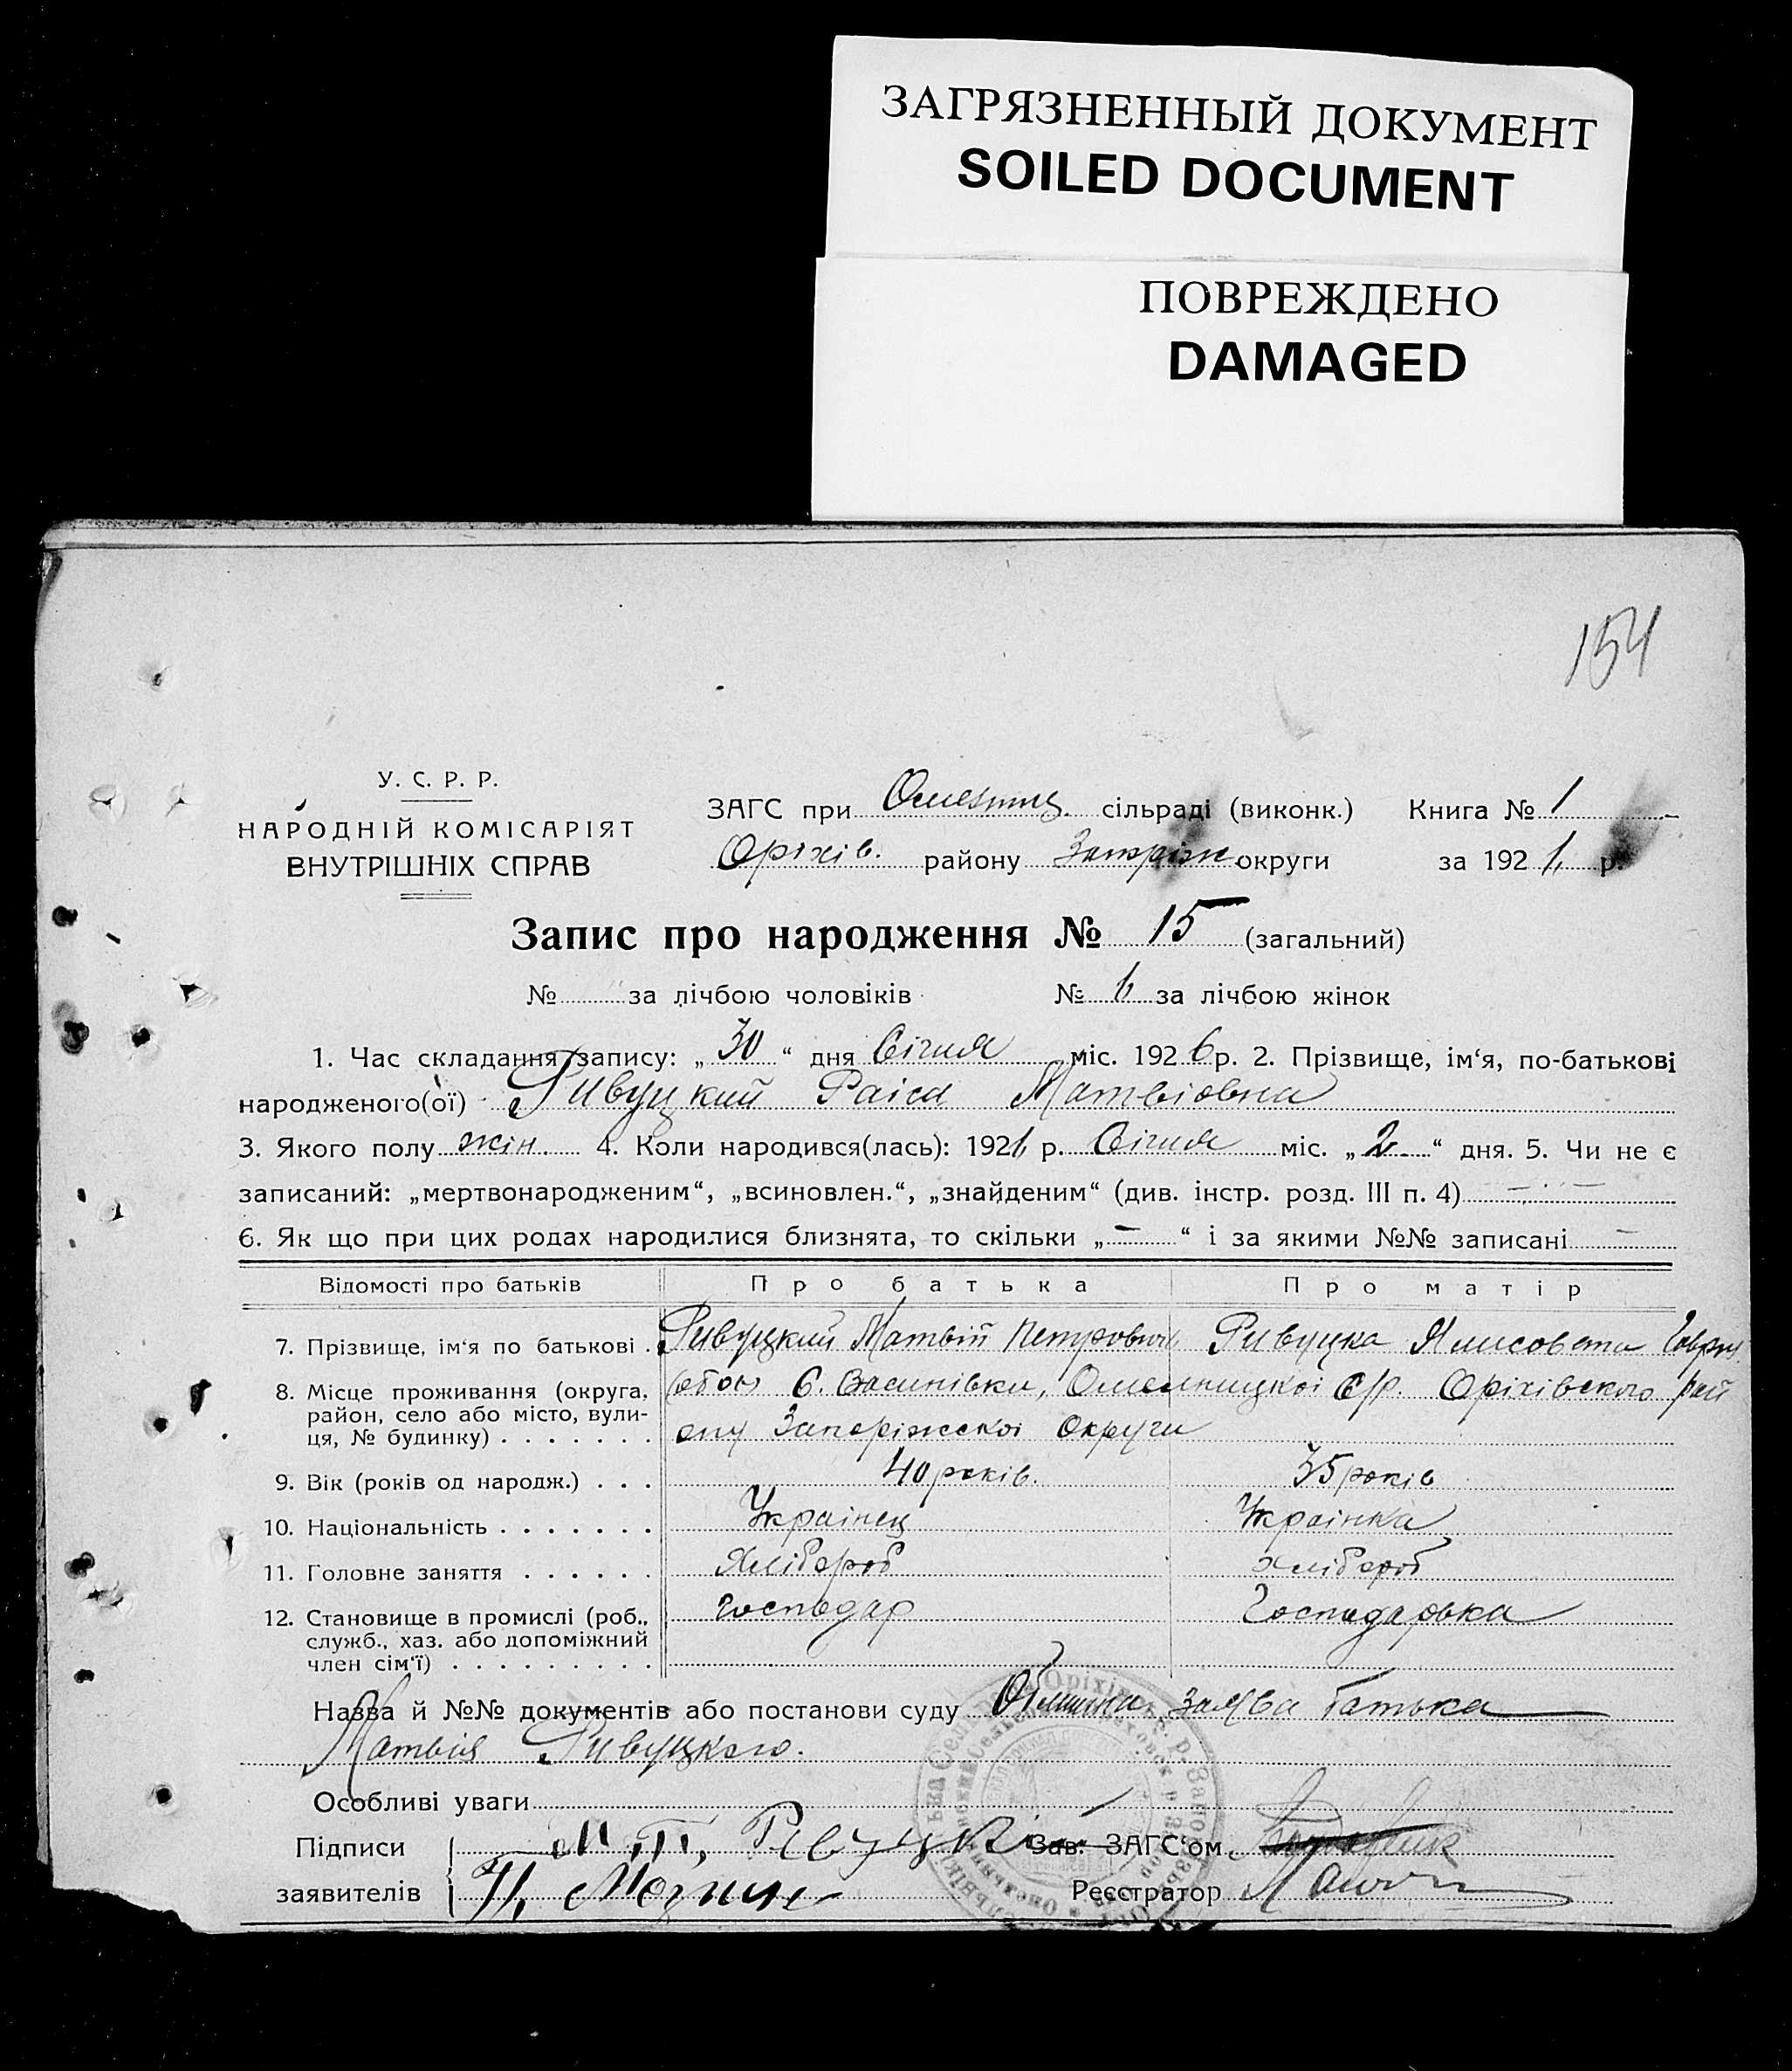 ЗАГРЯЗНЕННЫЙ ДОКУМЕНТ
SOILED DOCUMENT
ПОВРЕЖДЕНО
DAMAGED
154
У. С. Р. Р.
НАРОДНІЙ КОМІСАРІЯТ
ВНУТРІШНІХ СПРАВ
ЗАГС при сільраді (виконк.) Книга № 1
Оріхів. району Запоріж округи за 1926 р.
Запис про народження № 15 (загальний)
№ за лічбою чоловіків № 6 за лічбою жінок
1. Час складання запису: „30“ дня Січня міс. 1926 р. 2. Прізвище, ім‘я, по-батькові
народженого(ої) Ривуцкий Раіса Матвіовна
3. Якого полу жін. 4. Коли народився(лась): 1926 р. Січня міс. „2“ дня. 5. Чи не є
записаний: „мертвонародженим“, „всиновлен.“, „знайденим“ (див. інстр. розд. III п. 4) —
6. Як що при цих родах народилися близнята, то скільки „—“ і за якими №№ записані —
Відомості про батьків Про батька Про матір
7. Прізвище, ім‘я по батькові . Ривуцкий Матвій Петрович Ривуцка Ялисовета Гаври.
8. Місце проживання (округа, район, село або місто, вулиця, № будинку) . . . . . . . с. Васинівки, Омельницкоі с/р. Оріхівского рай
ону Запоріжскоі Округи
9. Вік (років од народж.) . . . 40 років. 35 років
10. Національність . . . . . . . Украінец Украінка
11. Головне заняття . . . . . . Хлібороб хлібороб
12. Становище в промислі (роб., служб., хаз. або допоміжний член сім‘ї) . . . . . . . . . Господар Господарька
Назва й №№ документів або постанови суду заява батька
Матвія Ривуцкого.
Особливі уваги
Підписи М. П. Ривуцкій Зав. ЗАГС‘ом
заявителів Реєстратор